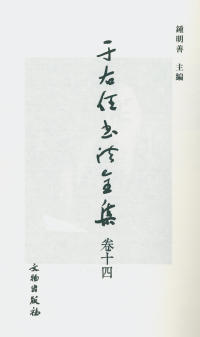 鍾明善 主編
于右任书法全集
卷十四
文物出版社